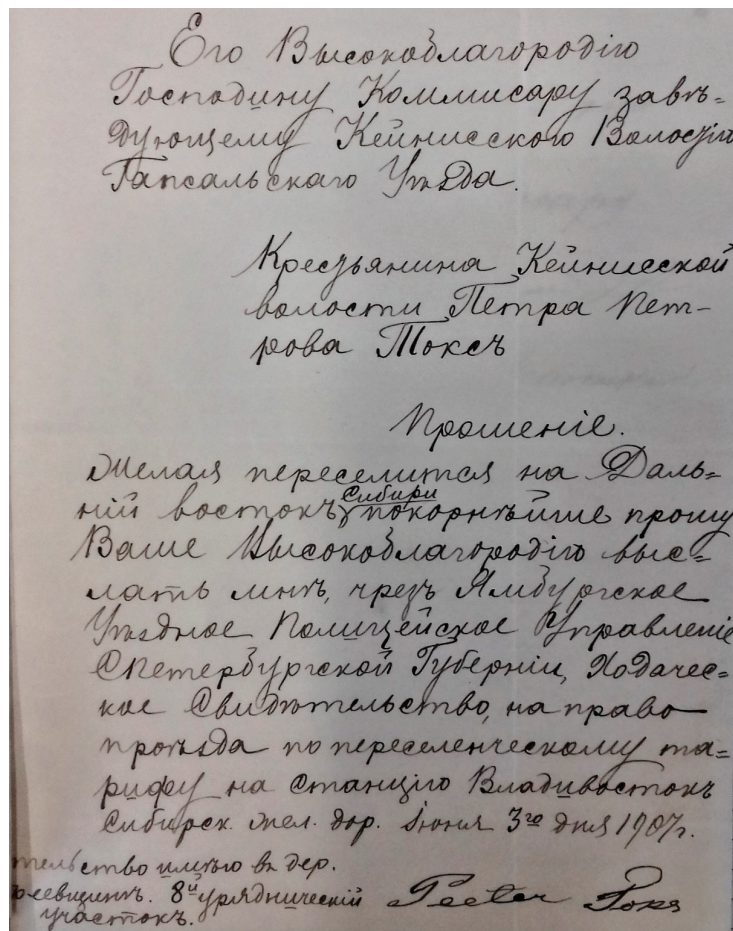 Его Высокоблагородію
Господину Коммисару завѣ=
дующему Кейнисского Волосзію
Гапсальскаго Уѣзда.
Кресзьянина Кейнисской
волости Петра Пет-
рова Токсъ
Прошеніе.
Желая переселится на Даль=
ній востокъ Сибири покорнѣйше прошу
Ваше Высокоблагородію выс=
лать мнѣ, чрезъ Ямбургское
Уѣздное Полицейское Управленіе
СПетербургской Губерніи, Ходачес=
кое Свидѣтельство, на право
проѣзда по переселенческому та=
рифу на станцію Владивостокъ
Сибирск. жел. дор. Іюня 3го дня 1907г.
тельство имѣю въ дер.
8й урядническій
участокъ.
Peeter